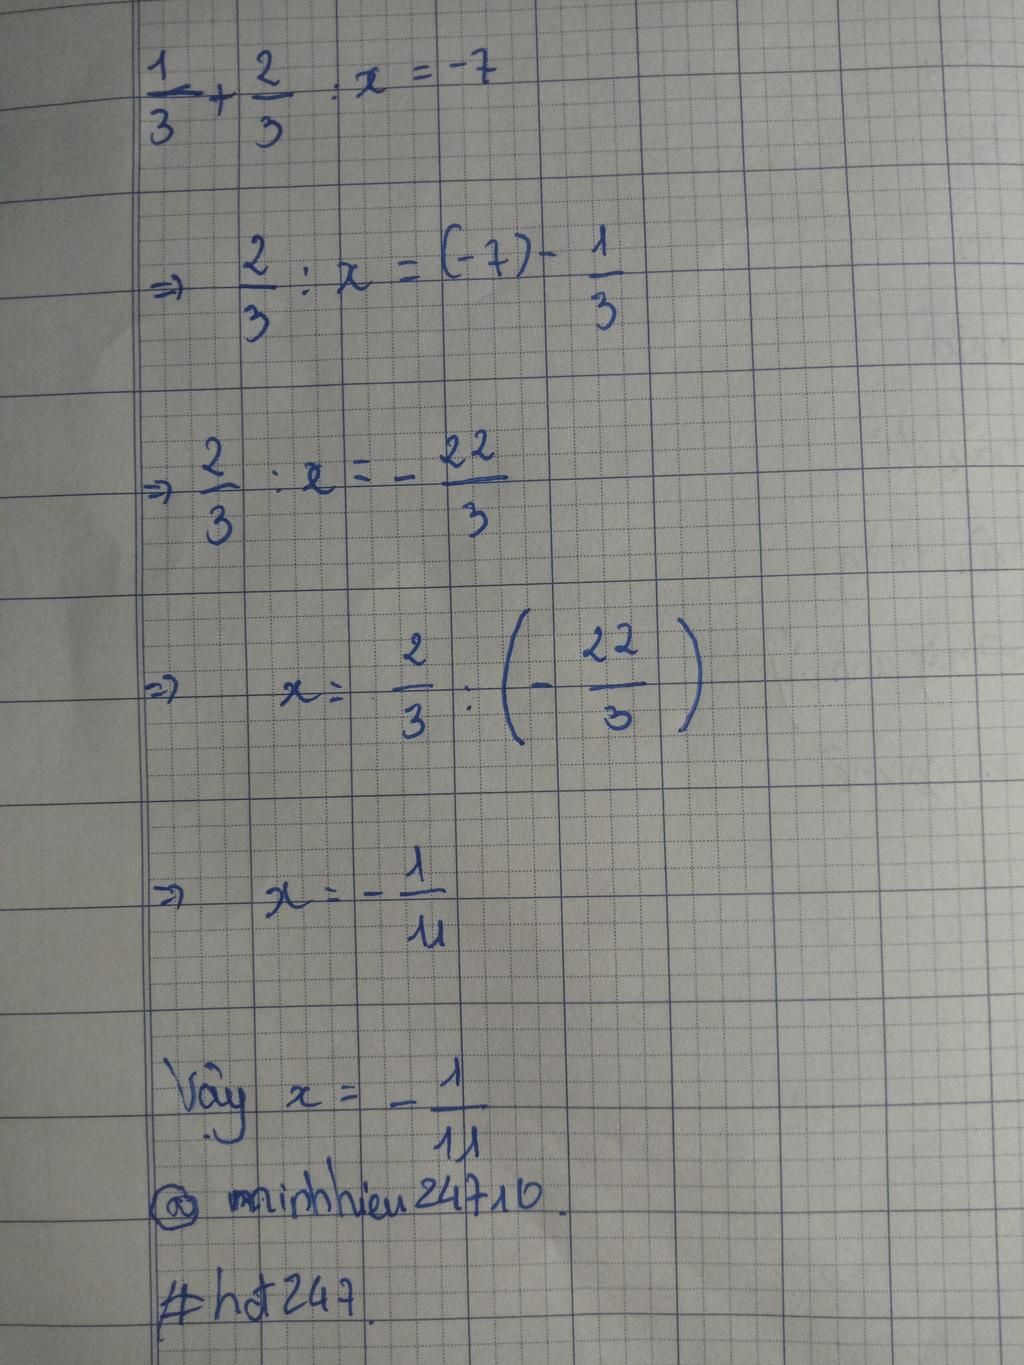 1/3 + 2/3 : x = -7
=> 2/3 : x = (-7) - 1/3
=> 2/3 : x = - 22/3
=> x = 2/3 : (- 22/3)
=> x = - 1/11
Vậy x = - 1/11
@ minhhieu24710.
#hđ247.